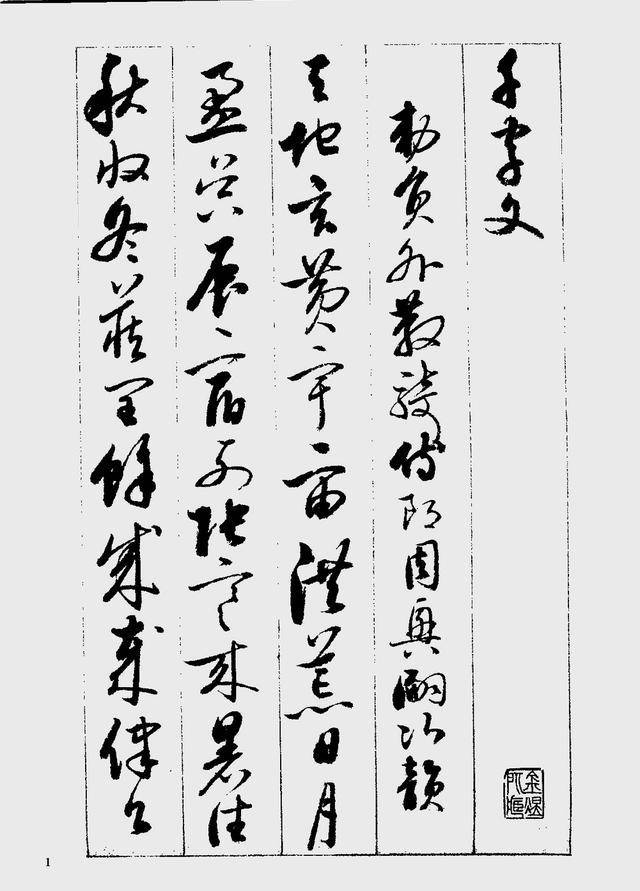 千字文
勅員外散騎侍郎周興嗣次韻
天地玄黃宇宙洪荒日月
盈昃辰宿列張寒來暑往
秋收冬藏閏餘成歲律呂
1